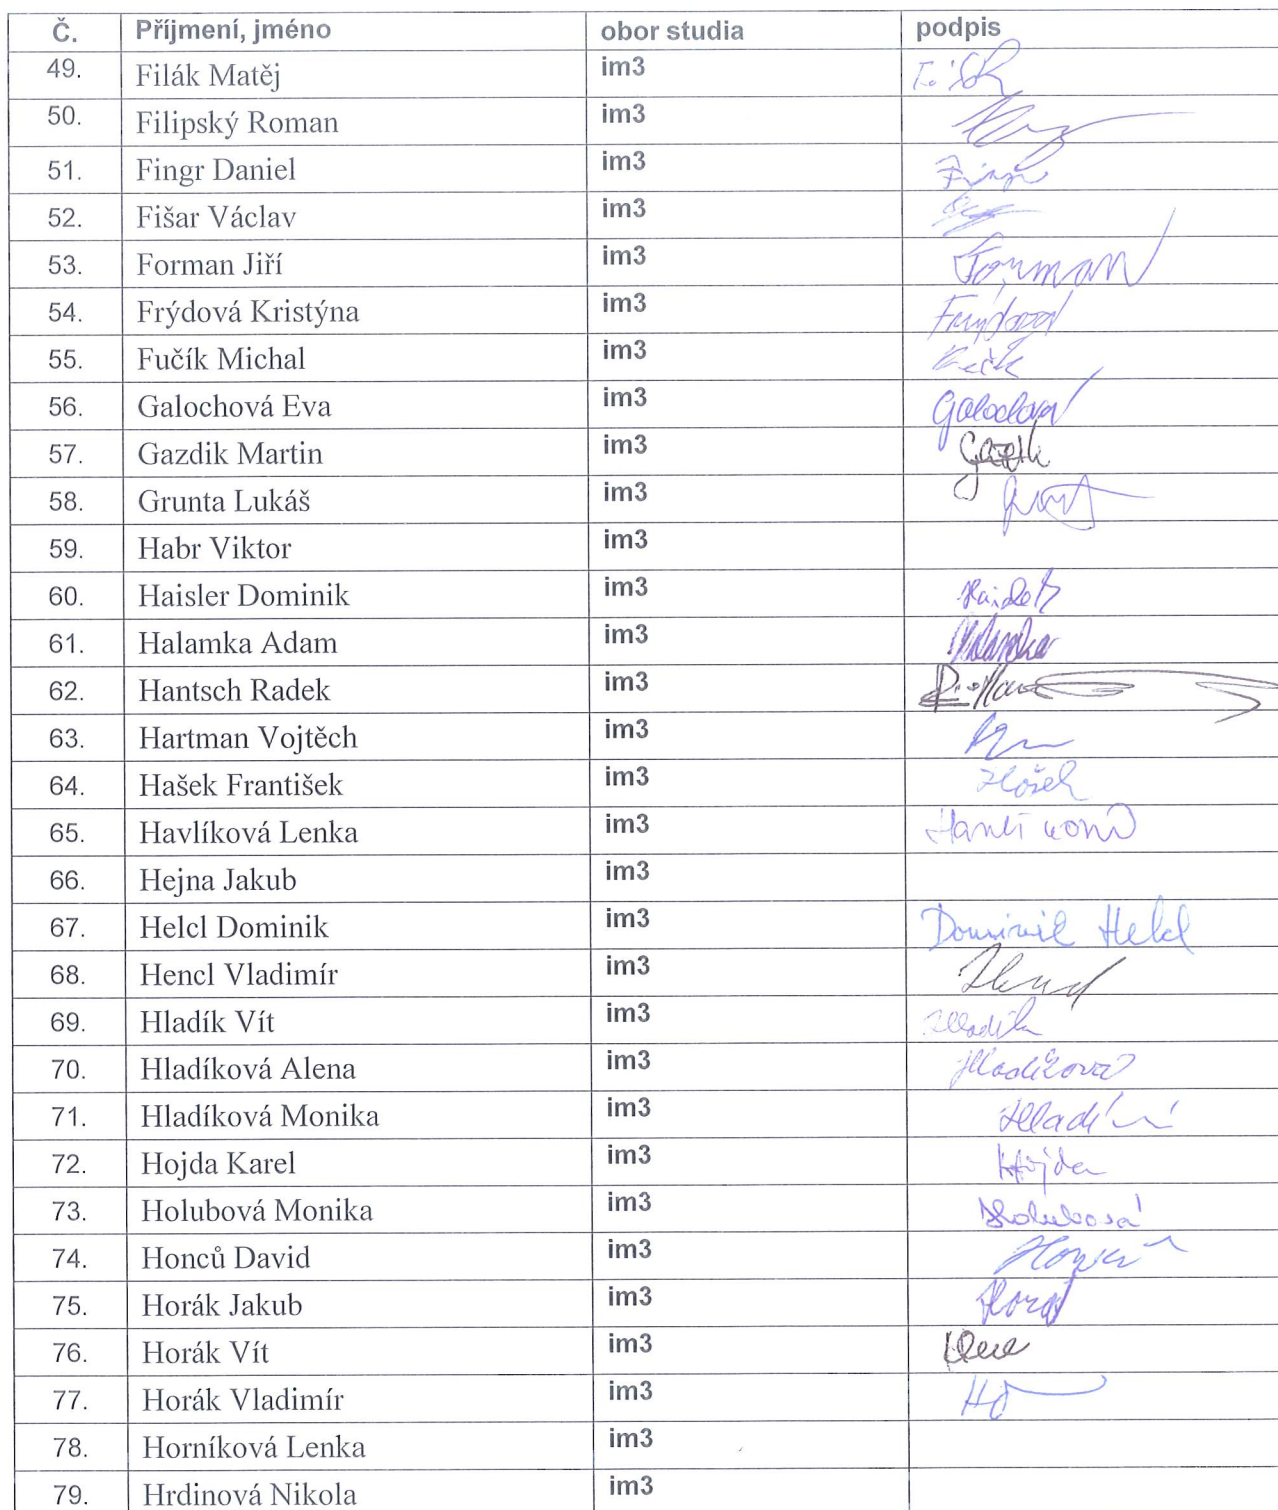 Č. Příjmení, jméno obor studia podpis
49. Filák Matěj im3
50. Filipský Roman im3
51. Fingr Daniel im3 Fingr
52. Fišar Václav im3
53. Forman Jiří im3 Forman
54. Frýdová Kristýna im3 Frýdová
55. Fučík Michal im3
56. Galochová Eva im3 Galochová
57. Gazdik Martin im3
58. Grunta Lukáš im3
59. Habr Viktor im3
60. Haisler Dominik im3
61. Halamka Adam im3 Halamka
62. Hantsch Radek im3
63. Hartman Vojtěch im3
64. Hašek František im3 Hašek
65. Havlíková Lenka im3 Havlíková
66. Hejna Jakub im3
67. Helcl Dominik im3 Dominik Helcl
68. Hencl Vladimír im3 Hencl
69. Hladík Vít im3 Hladík
70. Hladíková Alena im3 Hladíková
71. Hladíková Monika im3
72. Hojda Karel im3 Hojda
73. Holubová Monika im3 Holubová
74. Honců David im3 Honců
75. Horák Jakub im3 Horák
76. Horák Vít im3
77. Horák Vladimír im3
78. Horníková Lenka im3
79. Hrdinová Nikola im3